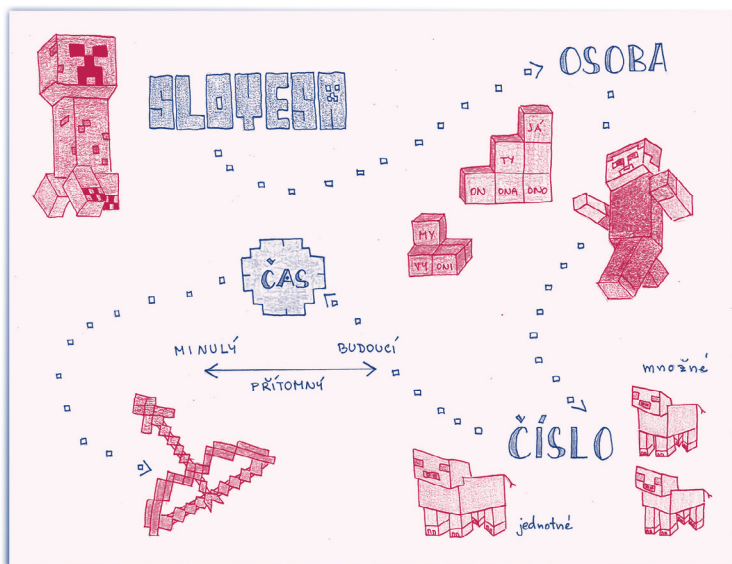 SLOVESA
OSOBA
JÁ
TY
ON ONA ONO
MY
VY ONI
ČAS
MINULÝ BUDOUCÍ
PŘÍTOMNÝ
množné
ČÍSLO
jednotné